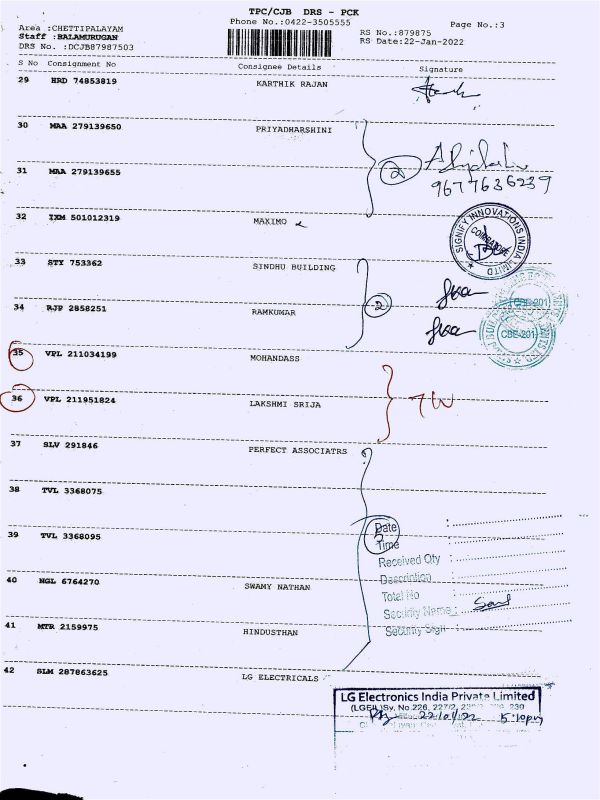 TPC/CJB DRS - PCK
Phone No.:0422-3505555
Page No.:3
Area :CHETTIPALAYAM
Staff :BALAMURUGAN
DRS No. :DCJB87987503
RS No.:879875
RS Date:22-Jan-2022
S No Consignment No Consignee Details Signature
29 HRD 74853819 KARTHIK RAJAN
30 MAA 279139650 PRIYADHARSHINI
2
31 MAA 279139655
9677636239
32 IXM 501012319 MAXIMO
SIGNIFY INNOVATIONS INDIA LIMITED
COIMBATORE
33 STY 753362 SINDHU BUILDING
2
34 RJP 2858251 RAMKUMAR
CBE-201
CBE-201
35 VPL 211034199 MOHANDASS
36 VPL 211951824 LAKSHMI SRIJA
37 SLV 291846 PERFECT ASSOCIATRS
38 TVL 3368075
Date
39 TVL 3368095
Time
Received Qty :
Description :
40 NGL 6764270 SWAMY NATHAN
Total No :
Security Name :
41 MTR 2159975 HINDUSTHAN
Security Sign :
42 SLM 287863625 LG ELECTRICALS
LG Electronics India Private Limited
(LGEIL)Sy. No.226, 227/2, 230
22/01/22 5:10pm